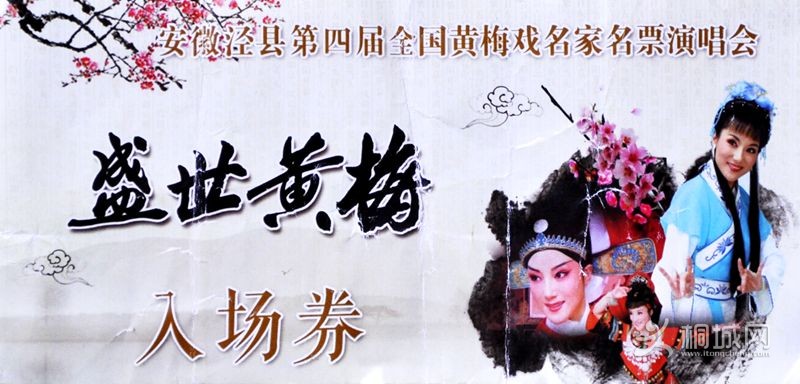 安徽泾县第四届全国黄梅戏名家名票演唱会
盛世黄梅
入场券
桐城网
www.itongcheng.com